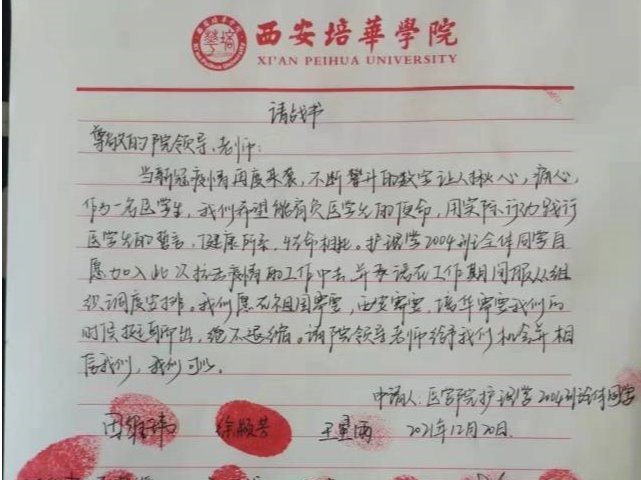 西安培華學院
XI'AN PEIHUA UNIVERSITY
请战书
尊敬的院领导、老师:
当新冠疫情再度来袭,不断攀升的数字让人揪心,痛心,
作为一名医学生,我们希望能肩负医学生的使命,用实际行动践行
医学生的誓言,健康所系,性命相托。护理学2004班全体同学自
愿加入此次抗击疫情的工作中去,并承诺在工作期间服从组
织调度安排。我们愿在祖国需要,西安需要,培华需要我们的
时候挺身而出,绝不退缩。请院领导老师给予我们机会并相
信我们,我们可以。
申请人:医学院护理学2004班全体同学
徐顺芳 2021年12月20日.